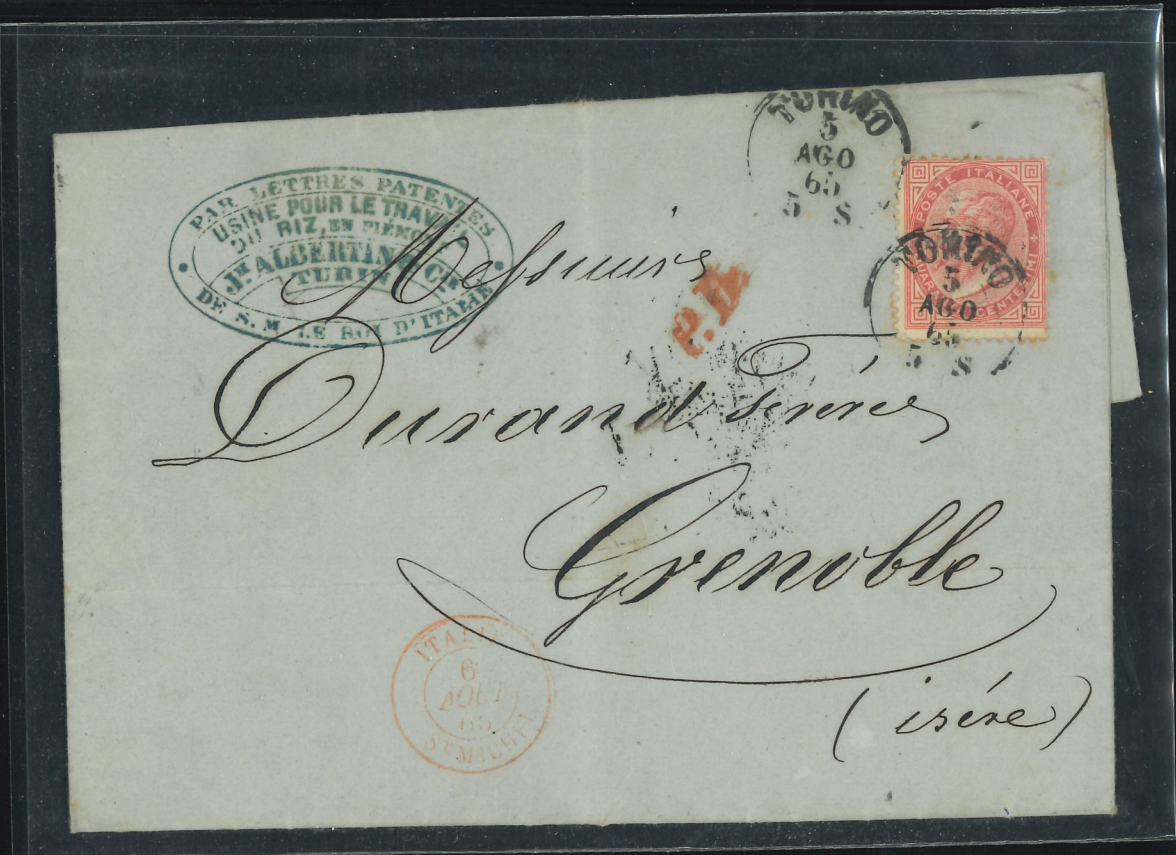 PAR LETTRES PATENTES
USINE POUR LE TRAVAIL
DU RIZ, EN PIÉMONT
Jh ALBERTIN & Cie
TURIN
DE S. M. LE ROI D'ITALIE
TORINO
5
AGO
65
5 S
POSTE ITALIANE
CENTESIMI
TORINO
5
AGO
65
5 S
Messieurs
P.D.
Durand Frères
Grenoble
(isére)
ITALIE
6
AOUT
65
ST MICHEL